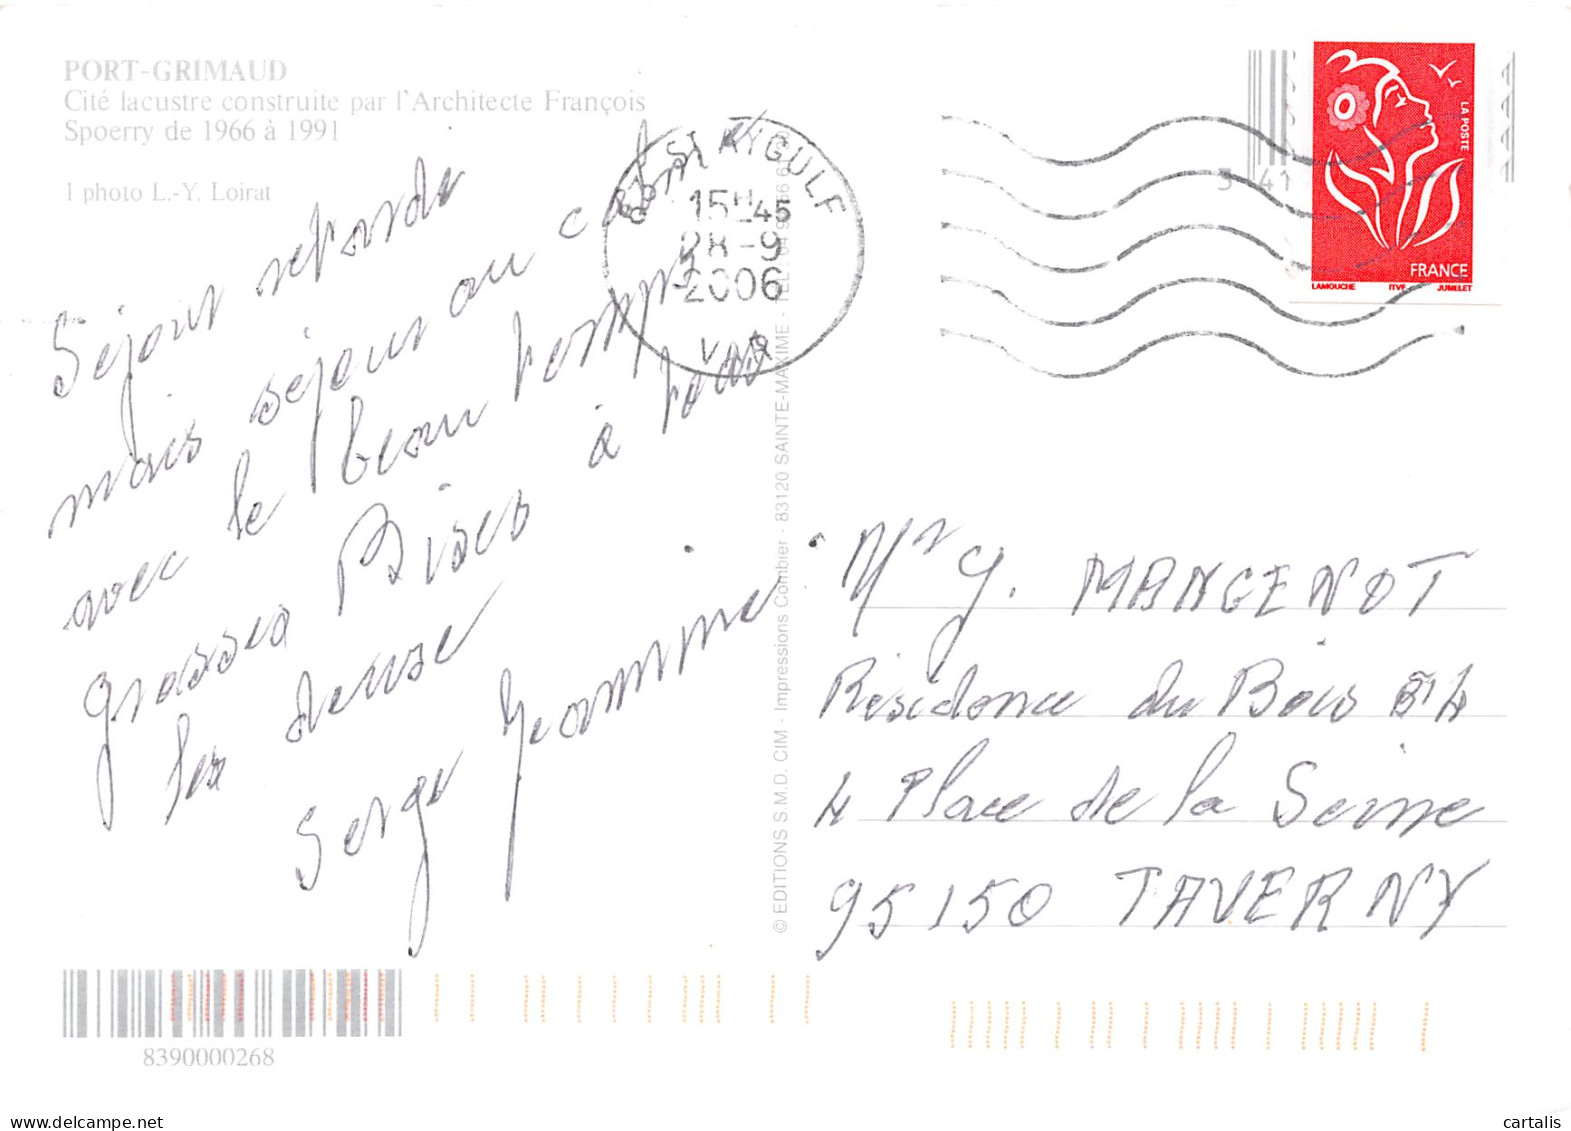 PORT-GRIMAUD
Cité lacustre construite par l'Architecte François
Spoerry de 1966 à 1991
1 photo L.-Y. Loirat
Séjour retardé
mais séjour au calme
avec le beau temps
grosses Bises à tous
les deux
Serge Jeannine
83 ST AYGULF
15H45
28-9
2006
VAR
LA POSTE
FRANCE
LAMOUCHE ITVF JUMELET
© EDITIONS S.M.D. CIM - Impressions Combier - 83120 SAINTE-MAXIME - TEL.
Mr J. MANGENOT
Résidence du Bois
4 Place de la Seine
95150 TAVERNY
8390000268
cartalis